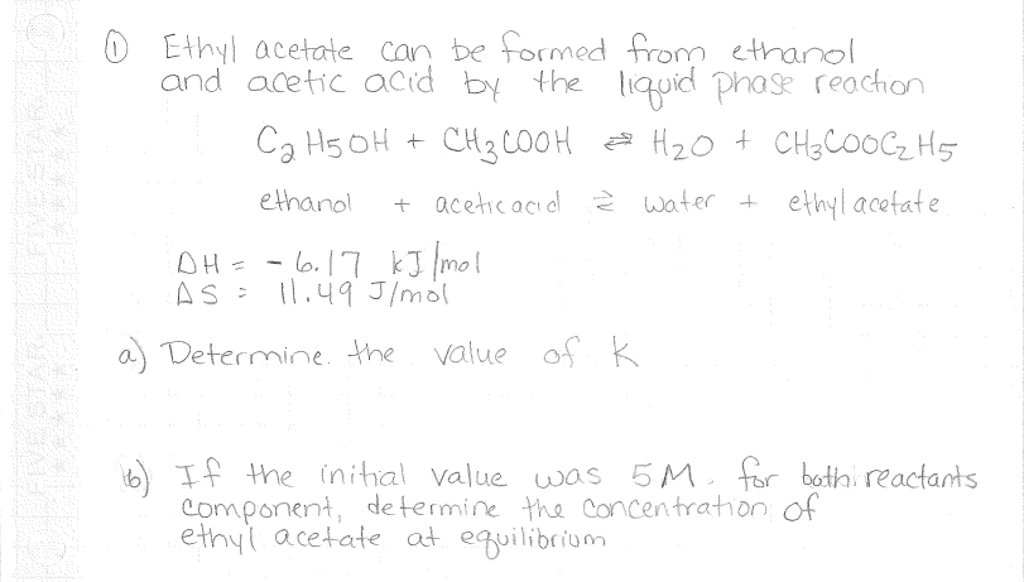 ① Ethyl acetate can be formed from ethanol
and acetic acid by the liquid phase reaction
C₂H₅OH + CH₃COOH ⇌ H₂O + CH₃COOC₂H₅
ethanol + acetic acid ⇌ water + ethyl acetate
ΔH = -6.17 kJ/mol
ΔS = 11.49 J/mol
a) Determine. the value of K
b) If the initial value was 5M. for both reactants
component, determine the concentration of
ethyl acetate at equilibrium
FIVE STAR
FIVE STAR